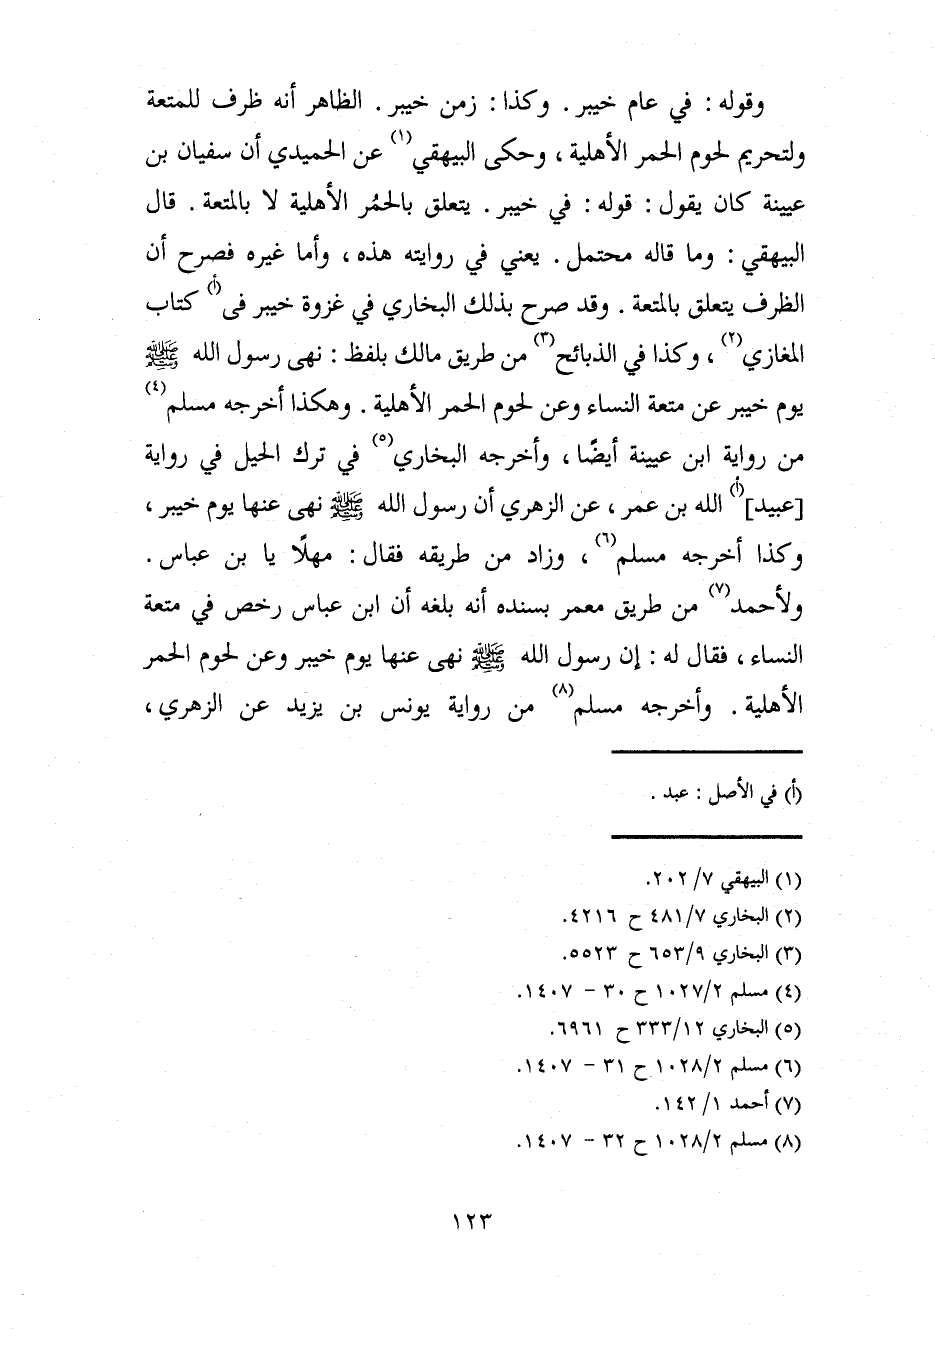 وقوله : في عام خيبر . وكذا : زمن خيبر . الظاهر أنه ظرف للمتعة
ولتحريم لحوم الحمر الأهلية ، وحكى البيهقي(١) عن الحميدي أن سفيان بن
عيينة كان يقول : قوله : في خيبر . يتعلق بالحمُر الأهلية لا بالمتعة . قال
البيهقي : وما قاله محتمل . يعني في روايته هذه ، وأما غيره فصرح أن
الظرف يتعلق بالمتعة . وقد صرح بذلك البخاري في غزوة خيبر فى(أ) كتاب
المغازي(٢) ، وكذا في الذبائح(٣) من طريق مالك بلفظ : نهى رسول الله ﷺ
يوم خيبر عن متعة النساء وعن لحوم الحمر الأهلية . وهكذا أخرجه مسلم(٤)
من رواية ابن عيينة أيضًا ، وأخرجه البخاري(٥) في ترك الحيل في رواية
[عبيد](أ) الله بن عمر ، عن الزهري أن رسول الله ﷺ نهى عنها يوم خيبر ،
وكذا أخرجه مسلم(٦) ، وزاد من طريقه فقال : مهلًا يا بن عباس .
ولأحمد(٧) من طريق معمر بسنده أنه بلغه أن ابن عباس رخص في متعة
النساء ، فقال له : إن رسول الله ﷺ نهى عنها يوم خيبر وعن لحوم الحمر
الأهلية . وأخرجه مسلم(٨) من رواية يونس بن يزيد عن الزهري ،
(أ) في الأصل : عبد .
(١) البيهقي ٧/ ٢٠٢.
(٢) البخاري ٤٨١/٧ ح ٤٢١٦.
(٣) البخاري ٦٥٣/٩ ح ٥٥٢٣.
(٤) مسلم ١٠٢٧/٢ ح ٣٠ - ١٤٠٧.
(٥) البخاري ٣٣٣/١٢ ح ٦٩٦١.
(٦) مسلم ١٠٢٨/٢ ح ٣١ - ١٤٠٧.
(٧) أحمد ١/ ١٤٢.
(٨) مسلم ١٠٢٨/٢ ح ٣٢ - ١٤٠٧.
١٢٣